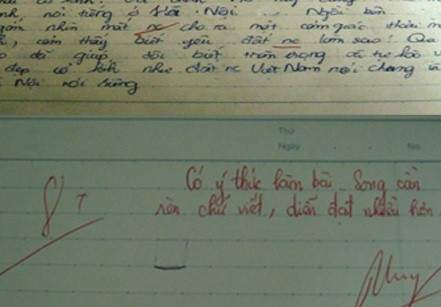 nổi tiếng ở Hà Nội . Ngồi bên
ngắm nhìn mất nc cho ra một cảm giác thoải m
cảm thấy biết yêu đất nc làm sao! Qua
đã giúp tôi biết trân trọng và tự hào
đẹp có như đất nc Việt Nam nói chung và
Nội nói riêng
Thứ
Ngày No.
Có ý thức làm bài. Song cần
8
rèn chữ viết, diễn đạt nhiều hơn
Huy